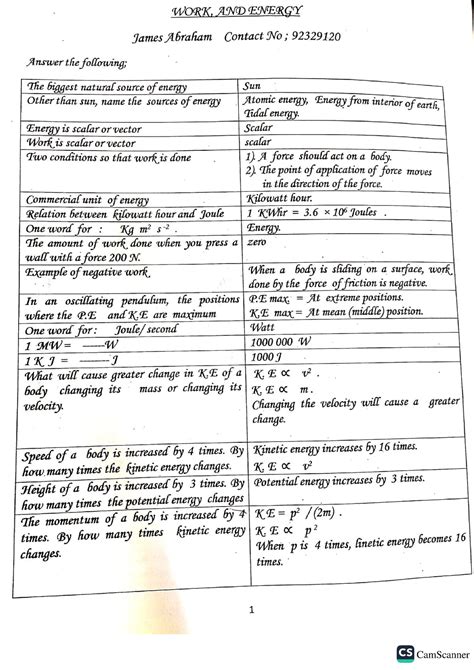 WORK, AND ENERGY
James Abraham Contact No ; 92329120
Answer the following;
The biggest natural source of energy Sun
Other than sun, name the sources of energy Atomic energy, Energy from interior of earth,
Tidal energy.
Energy is scalar or vector Scalar
Work is scalar or vector scalar
Two conditions so that work is done 1). A force should act on a body.
2). The point of application of force moves
in the direction of the force.
Commercial unit of energy Kilowatt hour.
Relation between kilowatt hour and Joule 1 KWhr = 3.6 × 10⁶ Joules .
One word for : Kg m² s⁻² . Energy.
The amount of work done when you press a zero
wall with a force 200 N.
Example of negative work When a body is sliding on a surface, work
done by the force of friction is negative.
In an oscillating pendulum, the positions P.E max. = At extreme positions.
where the P.E and K.E are maximum K.E max = At mean (middle) position.
One word for : Joule/ second Watt
1 MW= ------W 1000 000 W
1 K J = ------J 1000 J
What will cause greater change in K.E of a K. E ∝ v² .
body changing its mass or changing its K. E ∝ m .
velocity. Changing the velocity will cause a greater
change.
Speed of a body is increased by 4 times. By Kinetic energy increases by 16 times.
how many times the kinetic energy changes. K. E ∝ v²
Height of a body is increased by 3 times. By Potential energy increases by 3 times.
how many times the potential energy changes
The momentum of a body is increased by 4 K.E = p² /(2m) .
times. By how many times kinetic energy K. E ∝ p²
changes. When p is 4 times, linetic energy becomes 16
times.
1
CS CamScanner